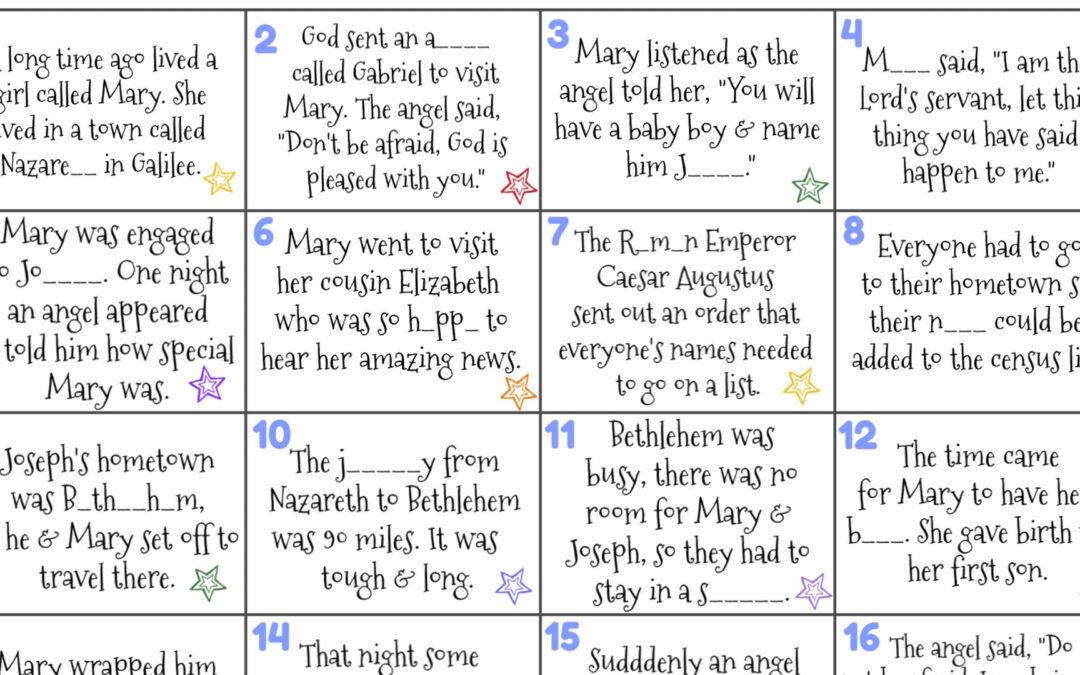 long time ago lived a
girl called Mary. She
ved in a town called
Nazare__ in Galilee.
2
God sent an a____
called Gabriel to visit
Mary. The angel said,
"Don't be afraid, God is
pleased with you."
3
Mary listened as the
angel told her, "You will
have a baby boy & name
him J____."
4
M___ said, "I am th
Lord's servant, let thi
thing you have said
happen to me."
Mary was engaged
o Jo____. One night
an angel appeared
told him how special
Mary was.
6
Mary went to visit
her cousin Elizabeth
who was so h_pp_ to
hear her amazing news.
7
The R_m_n Emperor
Caesar Augustus
sent out an order that
everyone's names needed
to go on a list.
8
Everyone had to go
to their hometown s
their n___ could be
added to the census li
Joseph's hometown
was B_th__h_m,
he & Mary set off to
travel there.
10
The j_____y from
Nazareth to Bethlehem
was 90 miles. It was
tough & long.
11
Bethlehem was
busy, there was no
room for Mary &
Joseph, so they had to
stay in a s_____.
12
The time came
for Mary to have he
b___. She gave birth
her first son.
Mary wrapped him
14
That night some
15
Sudddenly an angel
16
The angel said, "Do